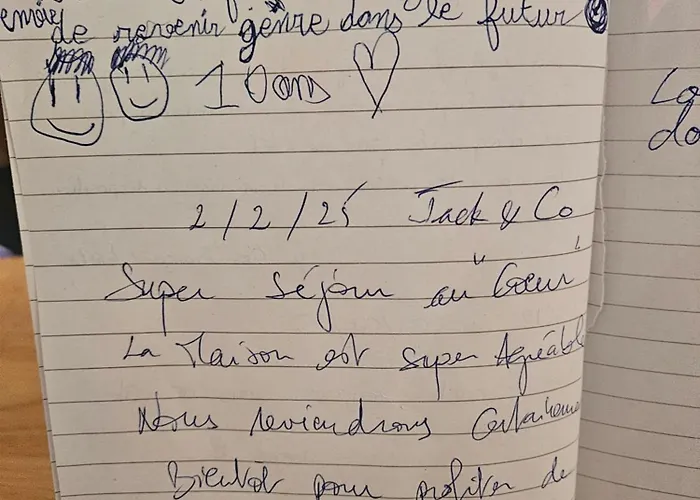 de revenir genre dans le futur
10 ans
2/2/25 Jack & Co
Super séjour au "Cœur"
La Maison est super Agréable
Nous reviendrons
Bientôt pour profiter de